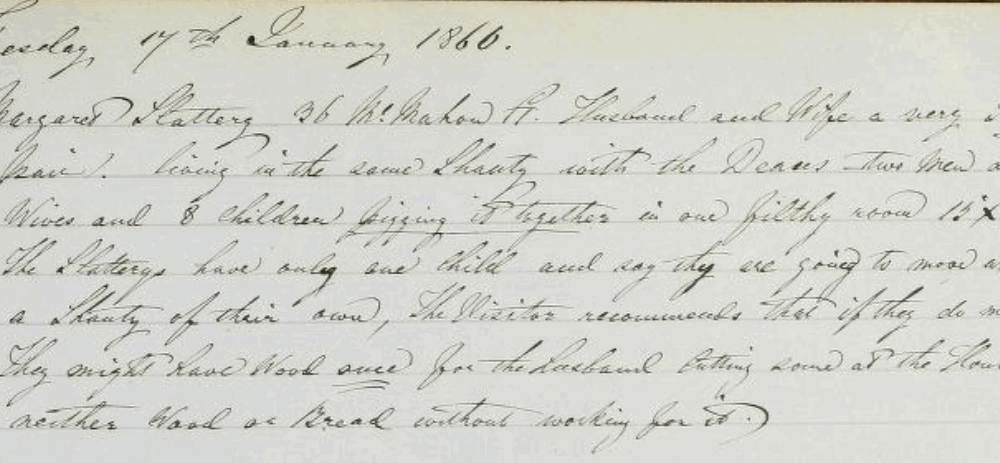 esday 17th January 1860.
Margaret Slattery 36 McMahon St. Husband and Wife a very
pair. living in the same Shanty with the Deaces two Men
Wives and 8 Children pigging it together in one filthy room 15 x
The Slatterys have only one Child and say they are going to move
a Shanty of their own, The Visitor recommends that if they do
They might have Wood once for the husband Cutting some at the Hou
neither Wood or Bread without working for it.)